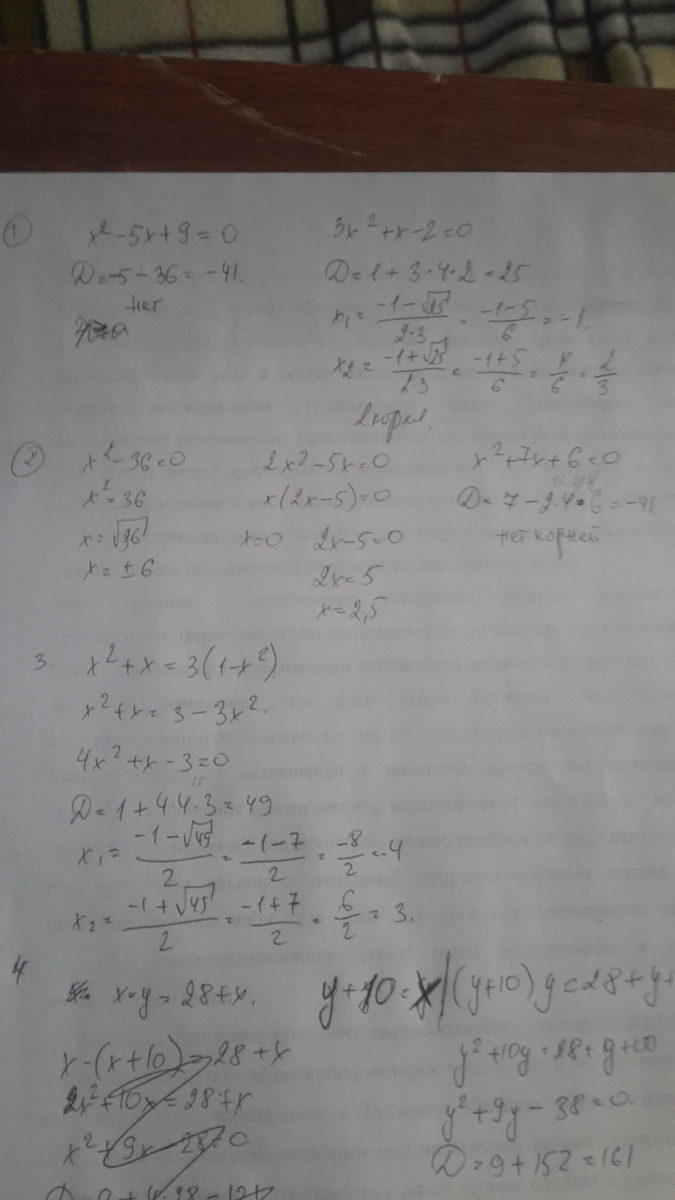 1 x² - 5x + 9 = 0
D = -5 - 36 = -41.
нет
3x² + x - 2 = 0
D = 1 + 3·4·2 = 25
x₁ = (-1 - √25)/(2·3) = (-1-5)/6 = -1.
x₂ = (-1 + √25)/(2·3) = (-1+5)/6 = 4/6 = 2/3
2 корня.
2 x² - 36 = 0
x² = 36
x = √36
x = ±6
2x² - 5x = 0
x(2x-5) = 0
x = 0 2x-5 = 0
2x = 5
x = 2,5
x² + 7x + 6 = 0
D = 7 - 2·4·6 = -41.
нет корней
3. x² + x = 3(1-x²)
x² + x = 3 - 3x².
4x² + x - 3 = 0
12
D = 1 + 4·4·3 = 49
x₁ = (-1 - √49)/2 = (-1-7)/2 = -8/2 = -4
x₂ = (-1 + √49)/2 = (-1+7)/2 = 6/2 = 3.
4 x·y = 28 + x.
x·(x+10) = 28 + x
2x² + 10x = 28 + x
x² + 9x - 28 = 0
y + 10 = x | (y+10) y = 28 + y +
y² + 10y = 28 + y + 10
y² + 9y - 38 = 0.
D = 9 + 152 = 161